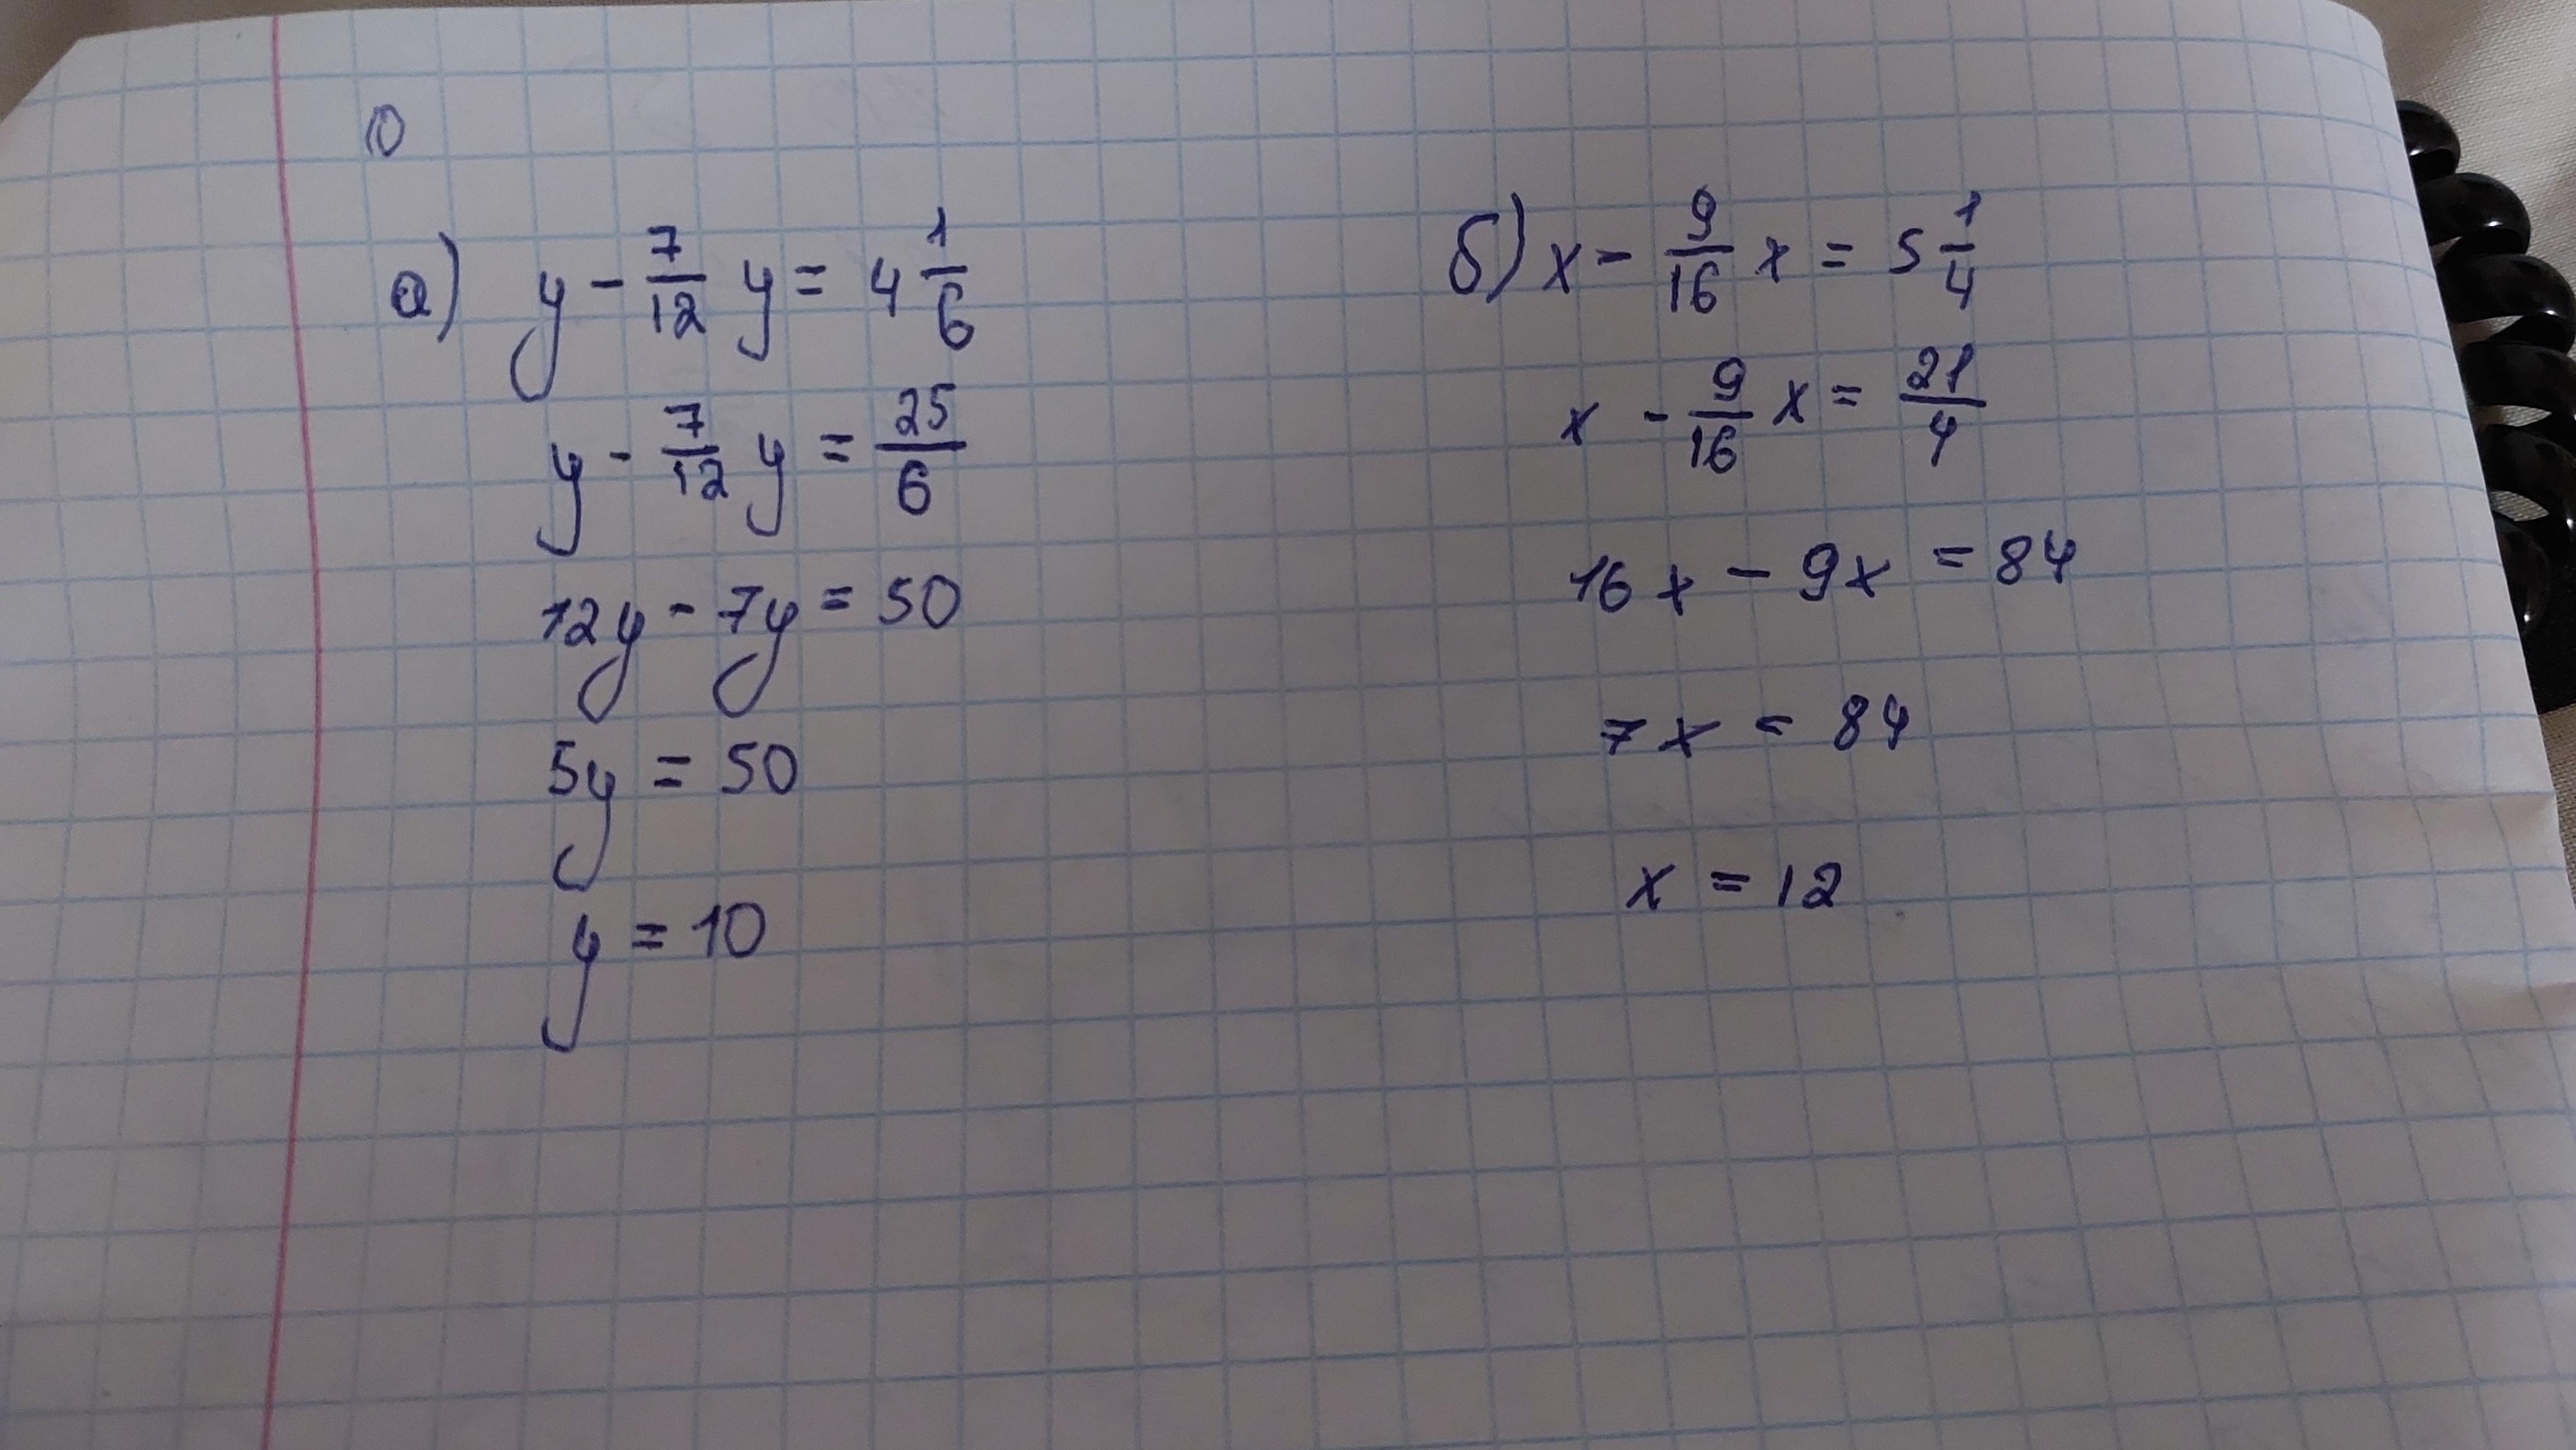 10
а) y - 7/12 y = 4 1/6
y - 7/12 y = 25/6
12y - 7y = 50
5y = 50
y = 10
б) x - 9/16 x = 5 1/4
x - 9/16 x = 21/4
16x - 9x = 84
7x = 84
x = 12